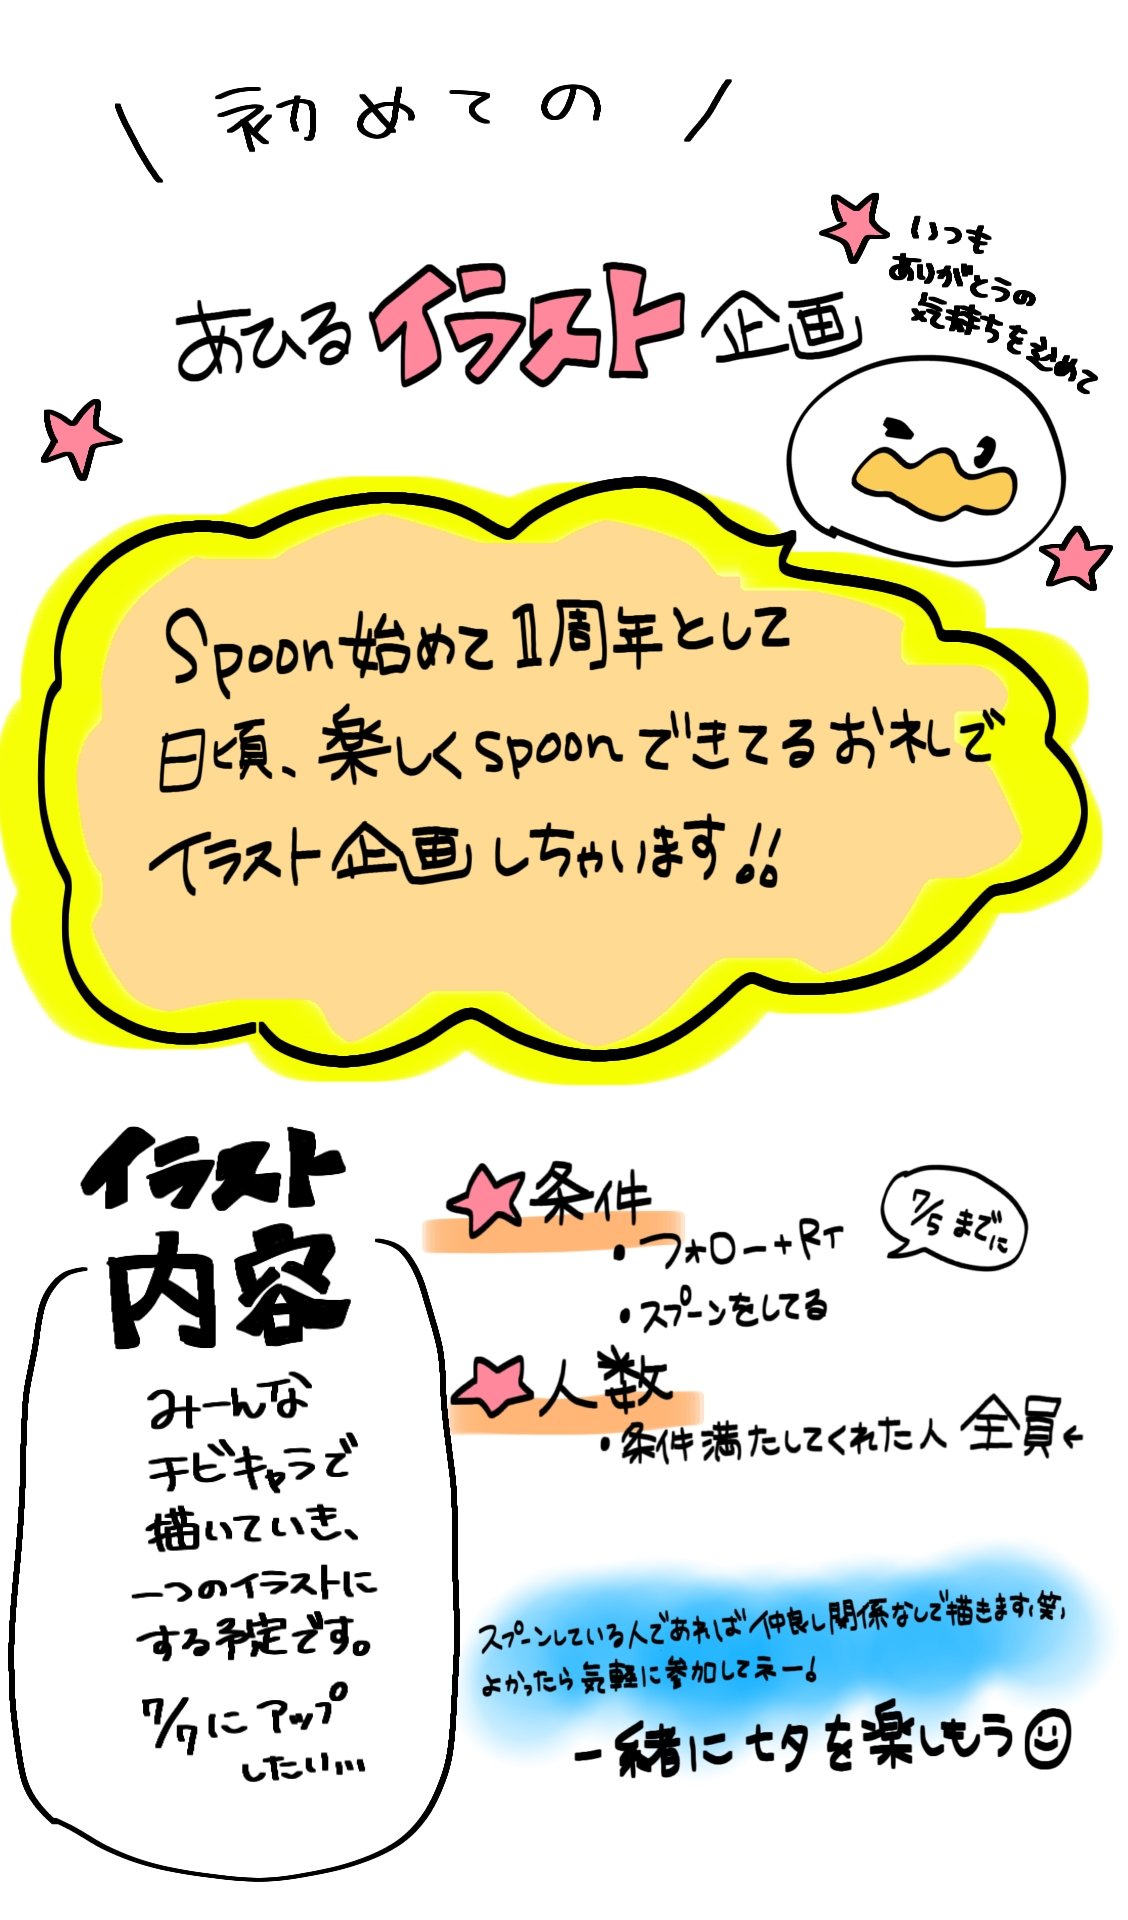 \ 初めての /
いつも
ありがとうの
気持ちを込めて
あひるイラスト企画
Spoon始めて1周年として
日頃、楽しくspoonできてるお礼で
イラスト企画しちゃいます!!
イラスト
内容
みーんな
チビキャラで
描いていき、
一つのイラストに
する予定です。
7/7にアップ
したい...
★条件
7/5までに
・フォロー+RT
・スプーンをしてる
★人数
・条件満たしてくれた人 全員←
スプーンしている人であれば仲良し関係なしで描きます(笑)
よかったら気軽に参加してネー!
一緒に七夕を楽しもう☺